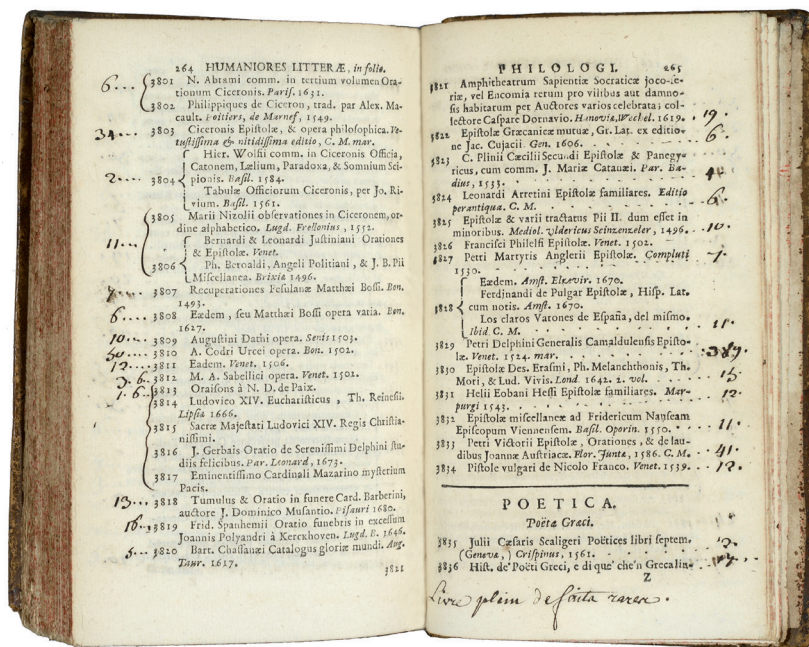 264 HUMANIORES LITTERÆ, in folio.
6... 3801 N. Abrami comm. in tertium volumen Ora-
tionum Ciceronis. Paris. 1631.
3802 Philippiques de Ciceron, trad. par Alex. Ma-
cault. Poitiers, de Marnef, 1549.
34... 3803 Ciceronis Epistolæ, & opera philosophica. Ve-
tustissima & nitidissima editio, C. M. mar.
Hier. Wolfii comm. in Ciceronis Officia,
Catonem, Lælium, Paradoxa, & Somnium Sci-
2... 3804 pionis. Basil. 1584.
Tabulæ Officiorum Ciceronis, per Jo. Ri-
vium. Basil. 1561.
3805 Marii Nizolii observationes in Ciceronem, or-
dine alphabetico. Lugd. Frellonius, 1552.
11... Bernardi & Leonardi Justiniani Orationes
& Epistolæ. Venet.
3806 Ph. Beroaldi, Angeli Politiani, & J. B. Pii
Miscellanea. Brixiæ 1496.
3807 Recuperationes Fesulanæ Matthæi Bossi. Bon.
1493.
6.... 3808 Eædem, seu Matthæi Bossi opera varia. Bon.
1627.
10... 3809 Augustini Dathi opera. Senis 1503.
3810 A. Codri Urcei opera. Bon. 1502.
12... 3811 Eadem. Venet. 1506.
3. 6. 3812 M. A. Sabellici opera. Venet. 1502.
1. 6. 3813 Oraisons à N. D. de Paix.
3814 Ludovico XIV. Eucharisticus, Th. Reinesii.
Lipsiæ 1666.
3815 Sacræ Majestati Ludovici XIV. Regis Christia-
nissimi.
3816 J. Gerbais Oratio de Serenissimi Delphini stu-
diis felicibus. Par. Leonard, 1673.
3817 Eminentissimo Cardinali Mazarino mysterium
Pacis.
13... 3818 Tumulus & Oratio in funere Card. Barberini,
auctore J. Dominico Musantio. Pisauri 1680.
16.. 3819 Frid. Spanhemii Oratio funebris in excessum
Joannis Polyandri à Kerckhoven. Lugd. B. 1646.
5... 3820 Bart. Chassanæi Catalogus gloriæ mundi. Aug.
Taur. 1617.
3821
PHILOLOGI. 265
3821 Amphitheatrum Sapientiæ Socraticæ joco-se-
riæ, vel Encomia rerum pro vilibus aut damno-
sis habitarum per Auctores varios celebrata; col-
lectore Caspare Dornavio. Hanoviæ, Wechel. 1619. 19.
3822 Epistolæ Græcanicæ mutuæ, Gr. Lat. ex editio-
ne Jac. Cujacii. Gen. 1606. 6.
3823 C. Plinii Cæcilii Secundi Epistolæ & Panegy-
ricus, cum comm. J. Mariæ Catanæi. Par. Ba-
dius, 1533.
3824 Leonardi Arretini Epistolæ familiares. Editio
perantiqua. C. M. 6.
3825 Epistolæ & varii tractatus Pii II. dum esset in
minoribus. Mediol. Vldericus Scinzenzeler, 1496. 10.
3826 Francisci Philelfi Epistolæ. Venet. 1502.
3827 Petri Martyris Anglerii Epistolæ. Compluti
1530.
Eædem. Amst. Elzevir. 1670.
Ferdinandi de Pulgar Epistolæ, Hisp. Lat.
3828 cum notis. Amst. 1670.
Los claros Varones de España, del mismo.
Ibid. C. M. 11.
3829 Petri Delphini Generalis Camaldulensis Episto-
læ. Venet. 1524. mar.
3830 Epistolæ Des. Erasmi, Ph. Melanchthonis, Th.
Mori, & Lud. Vivis. Lond. 1642. 2. vol. 15.
3831 Helii Eobani Hessi Epistolæ familiares. Mar-
purgi 1543. 12.
3832 Epistolæ miscellaneæ ad Fridericum Nauseam
Episcopum Viennensem. Basil. Oporin. 1550. 11.
3833 Petri Victorii Epistolæ, Orationes, & de lau-
dibus Joannæ Austriacæ. Flor. Juntæ, 1586. C. M. 41.
3834 Pistole vulgari de Nicolo Franco. Venet. 1539. 12.
POETICA.
Poëtæ Græci.
3835 Julii Cæsaris Scaligeri Poëtices libri septem.
(Genevæ,) Crispinus, 1561.
3836 Hist. de' Poëti Greci, e di que' che'n Greca lin-
Z
Livre plein de